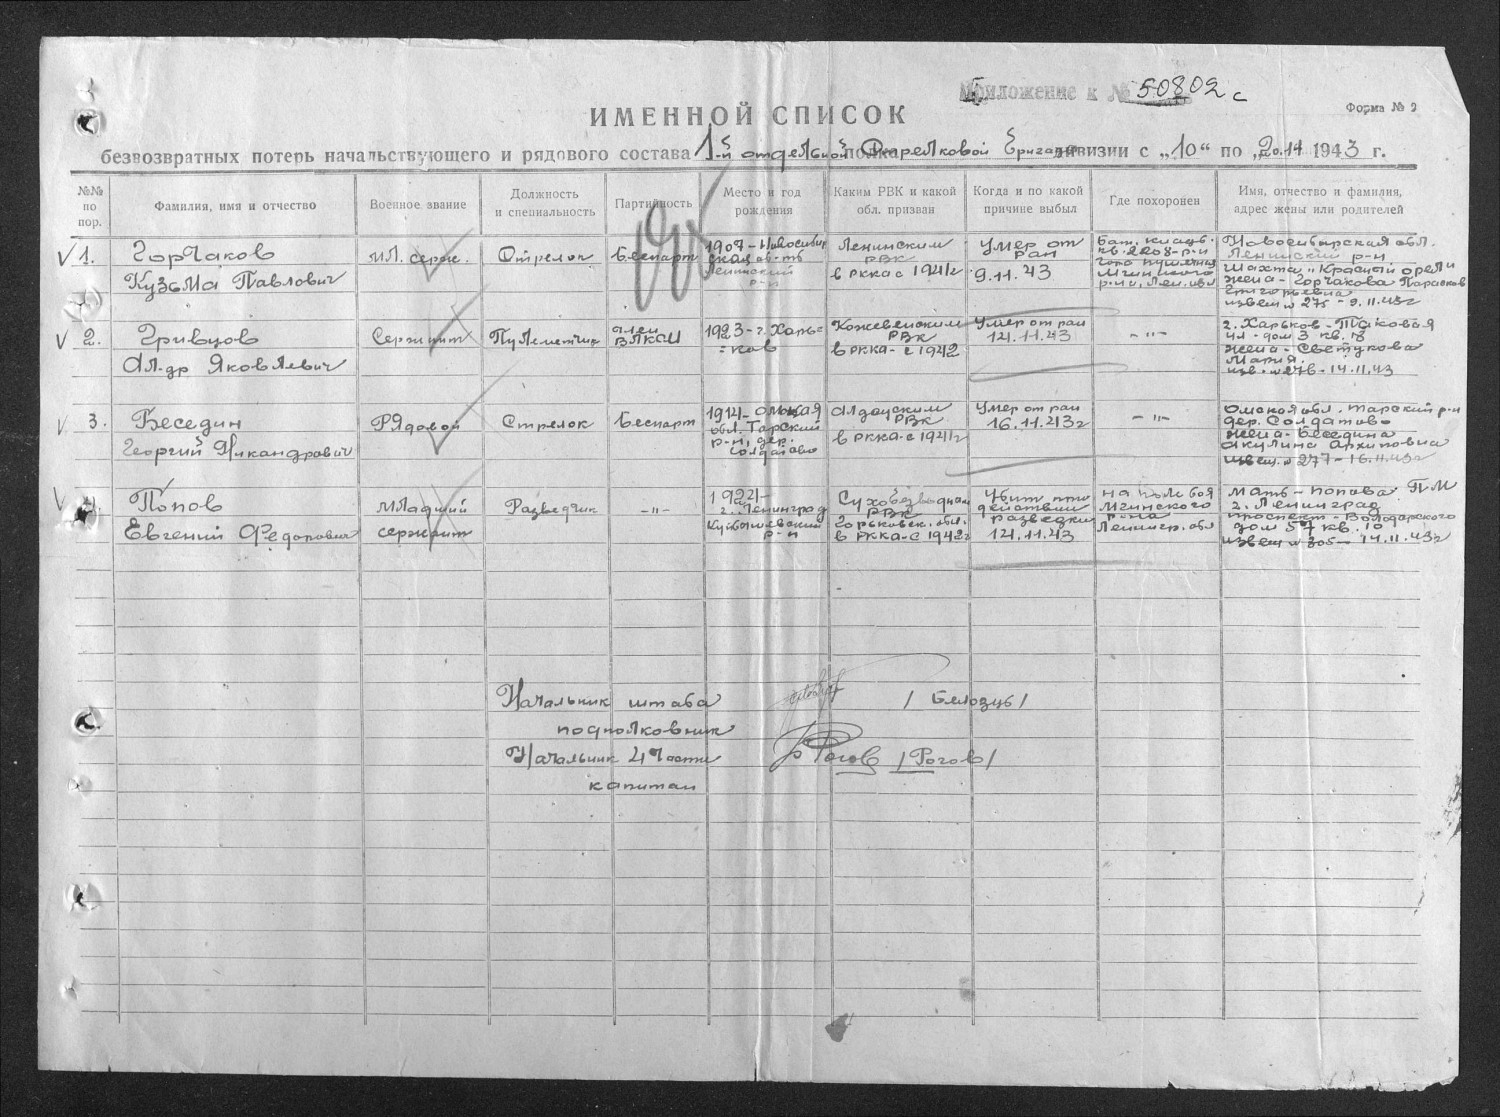 Приложение к № 50802с
Форма № 2
ИМЕННОЙ СПИСОК
безвозвратных потерь начальствующего и рядового состава 1-й отдельной Стрелковой Бригады дивизии с „10“ по „20.11 1943 г.
№№ по пор.
Фамилия, имя и отчество
Военное звание
Должность и специальность
Партийность
Место и год рождения
Каким РВК и какой обл. призван
Когда и по какой причине выбыл
Где похоронен
Имя, отчество и фамилия, адрес жены или родителей
1.
Горчаков
Кузьма Павлович
мл. серж.
Стрелок
Беспарт
1907 - Новосибир
ская об-ть
Ленинский
р-н
Ленинским
РВК
в РККА с 1941г
Умер от
ран
9.11.43
Новосибирская обл.
Ленинский р-н
шахта „Красный орел"
жена - Горчакова Парасков
Григорьевна
извещ № 275 - 9.11.43г
2.
Гривцов
Ал-др Яковлевич
Сержант
Пулеметчик
член
ВЛКСМ
1923 - г. Харь-
ков
Кожевенским
РВК
в РККА - с 1942
Умер от ран
14.11.43
- „ -
г. Харьков -
ул - дом 3 кв. 18
жена - Светукова
Мария.
изв. № 276 - 14.11.43
3.
Беседин
Георгий Никандрович
Рядовой
Стрелок
Беспарт
1914 - Омская
обл. Тарский
р-н, дер.
Солдатово
Алданским
РВК
в РККА - с 1941г
Умер от ран
16.11.43г
- „ -
Омская обл. Тарский р-н
дер. Солдатово
жена - Беседина
Акулина Архиповна
извещ. № 277 - 16.11.43г
4.
Попов
Евгений Федорович
Младший
сержант
Разведчик
- „ -
1924 -
г. Ленинград
Куйбышевский
р-н
Сухобезводным
РВК
Горьковск. обл.
в РККА - с 1942г
Убит при
действии
разведки
14.11.43
на поле боя
Мгинского
р-на
Ленингр. обл
мать - Попова П.М
г. Ленинград
проспект - Володарского
дом 57 кв. 10
извещ № 305 - 14.11.43г
Начальник штаба
подполковник
/ Белозуб /
Начальник 4 части
Рогов / Рогов /
капитан